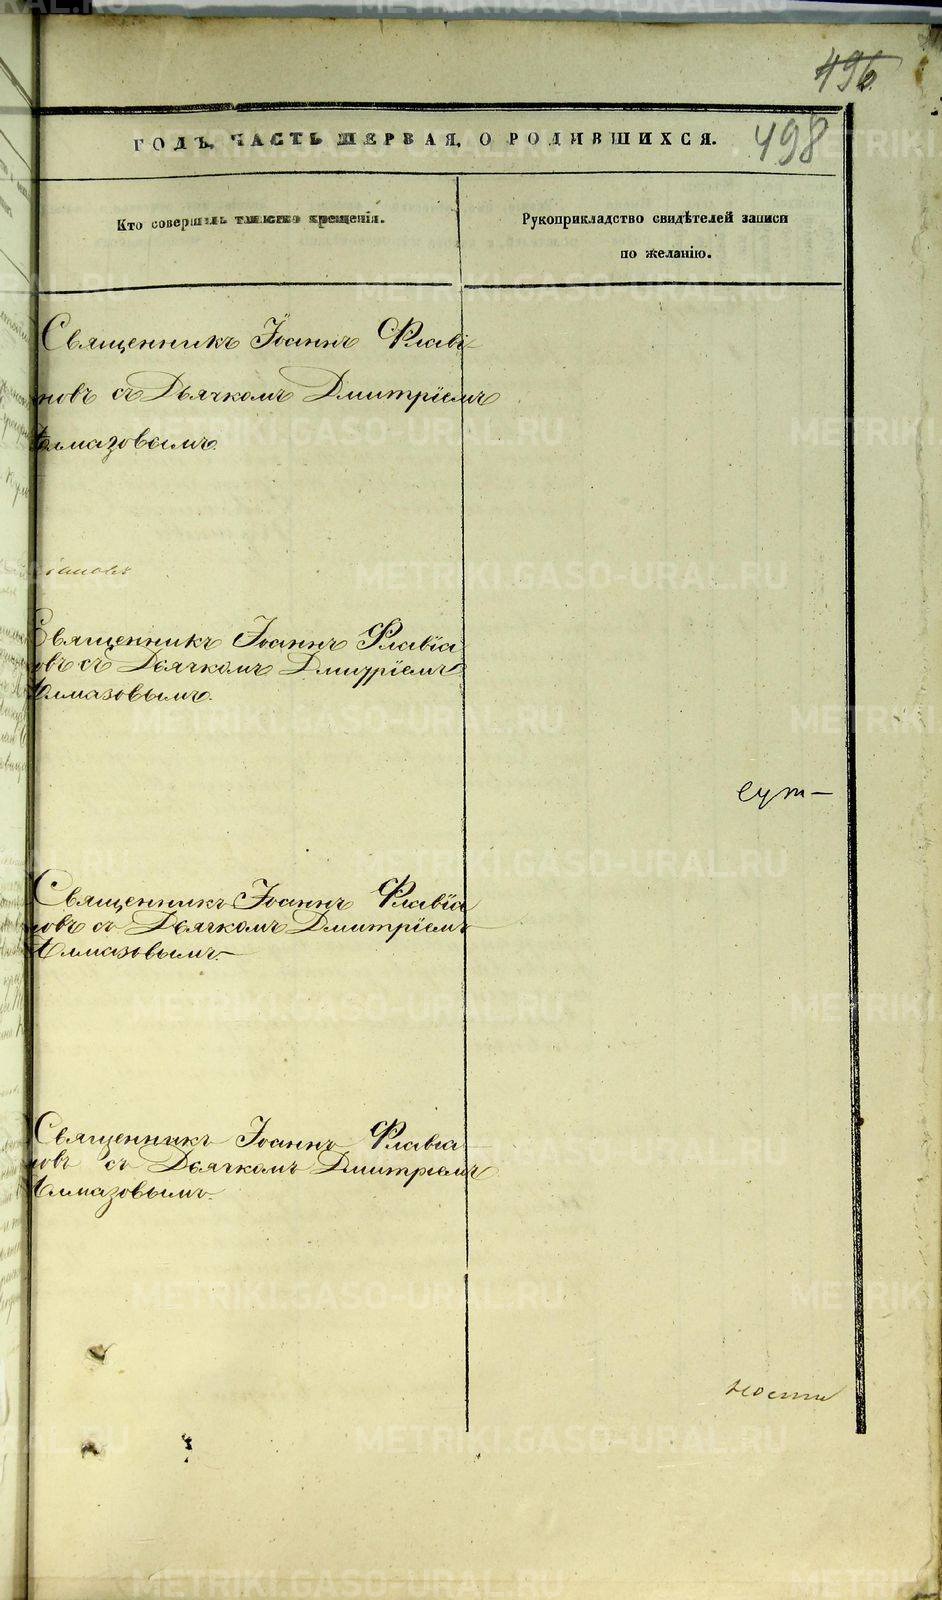 496
498
ГОДЪ, ЧАСТЬ ПЕРВАЯ, О РОДИВШИХСЯ.
Кто совершилъ таинство крещенія.
Рукоприкладство свидѣтелей записи
по желанію.
Священникъ Іоаннъ Флаві-
новъ съ Дьячкомъ Дмитріемъ
Алмазовымъ.
Священникъ Іоаннъ Флавіа
новъ съ Дьячкомъ Дмитріемъ
Алмазовымъ.
Священникъ Іоаннъ Флавіа
новъ съ Дьячкомъ Дмитріемъ
Алмазовымъ.
Священникъ Іоаннъ Флавіа
новъ съ Дьячкомъ Дмитріемъ
Алмазовымъ.
METRIKI.GASO-URAL.RU